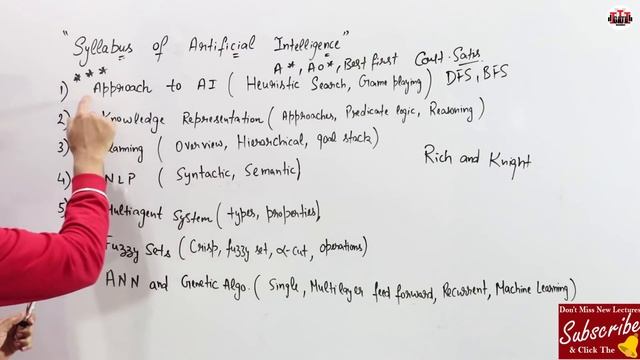 "Syllabus of Artificial Intelligence"
A*, AO*, Best first Const. Satis.
DFS, BFS
1) *** Approach to AI ( Heuristic Search, Game playing)
2) Knowledge Representation ( Approaches, Predicate logic, Reasoning)
3) nning ( Overview, Hierarchical, goal stack)
Rich and Knight
4) NLP ( Syntactic, Semantic)
5) ultiagent System ( types, properties)
Fuzzy Sets ( Crisp, fuzzy set, α-cut, operations)
ANN and Genetic Algo. ( Single, Multilayer feed forward, Recurrent, Machine Learning)
Don't Miss New Lectures
Subscribe
& Click The